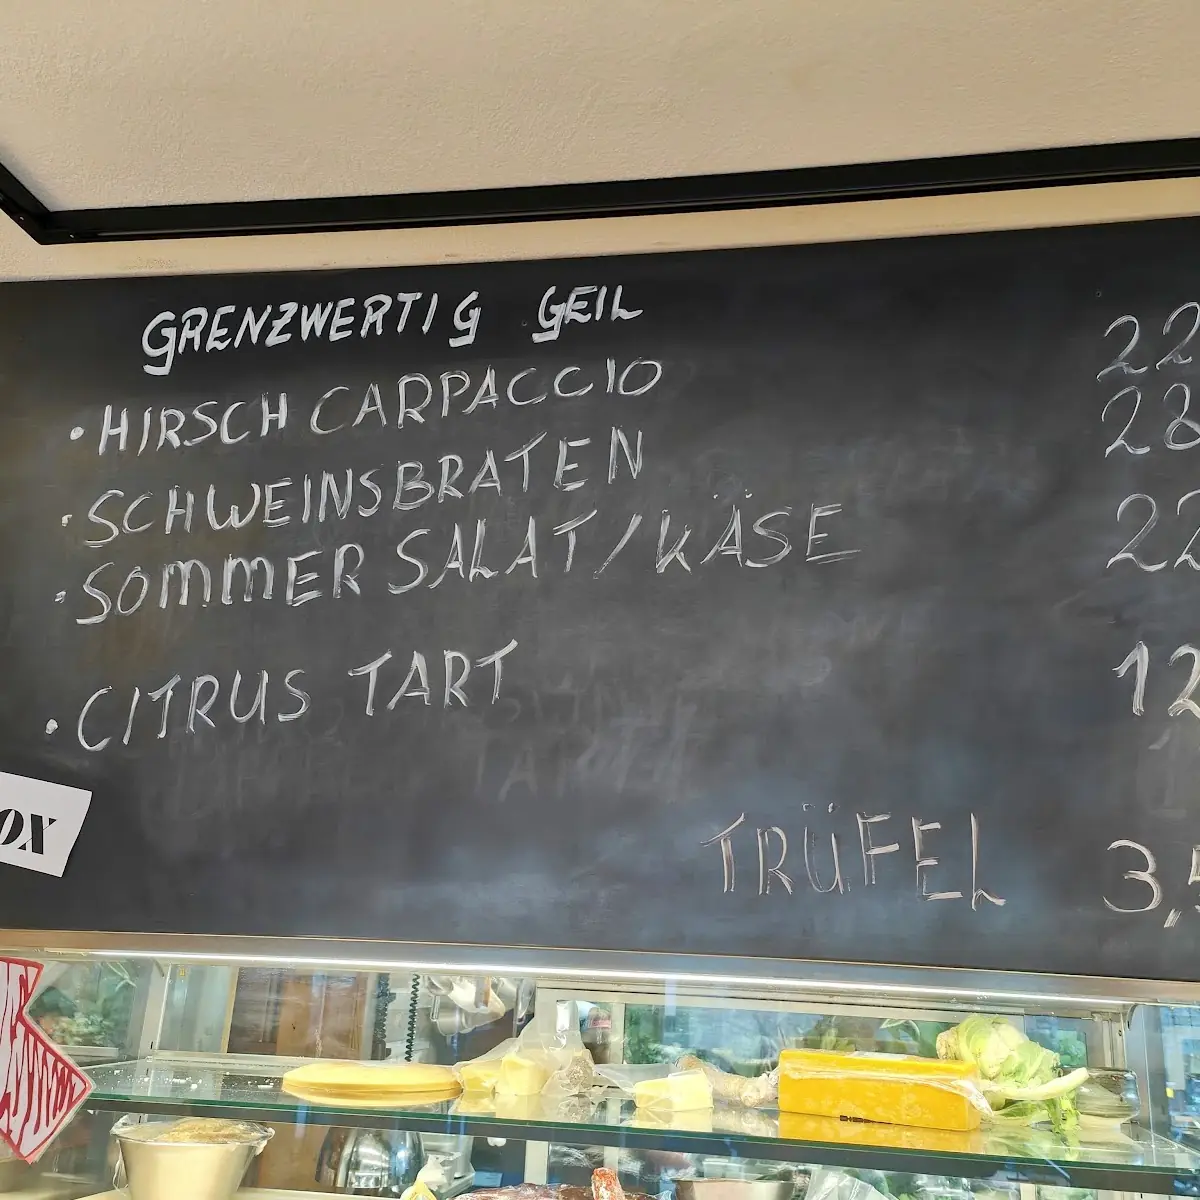 GRENZWERTIG GEIL
• HIRSCH CARPACCIO 22
• SCHWEINSBRATEN 28
• SOMMER SALAT/KÄSE 22
• CITRUS TART 12
TRÜFEL 3,5
OX